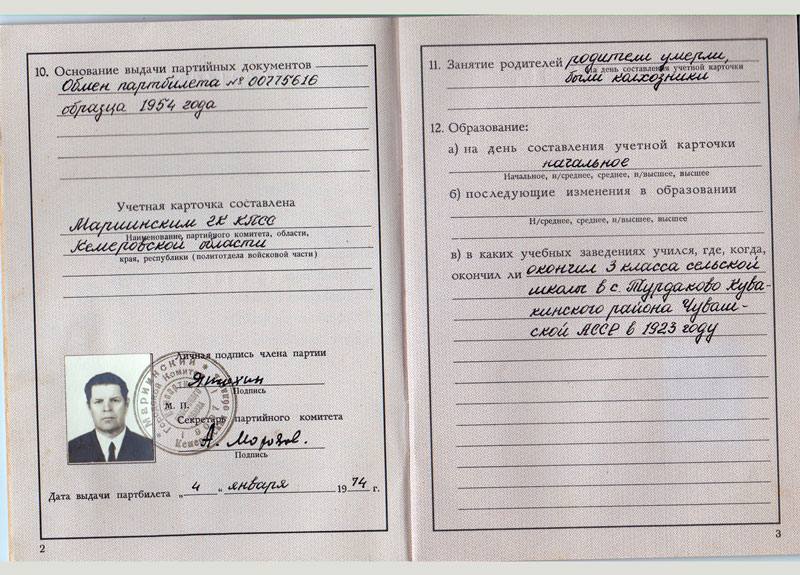 10. Основание выдачи партийных документов
Обмен партбилета № 00775616
образца 1954 года
Учетная карточка составлена
Мариинским ГК КПСС
Наименование партийного комитета, области,
Кемеровской области
края, республики (политотдела войсковой части)
Личная подпись члена партии
Подпись
М. П.
Секретарь партийного комитета
А. Морозов.
Подпись
Дата выдачи партбилета „ 4 “ января 1974 г.
2
11. Занятие родителей родители умерли,
на день составления учетной карточки
были колхозники
12. Образование:
а) на день составления учетной карточки
начальное
Начальное, н/среднее, среднее, н/высшее, высшее
б) последующие изменения в образовании
Н/среднее, среднее, н/высшее, высшее
в) в каких учебных заведениях учился, где, когда,
окончил ли окончил 3 класса сельской
школы в с. Турдаково Кува-
кинского района Чуваш-
ской АССР в 1923 году
3